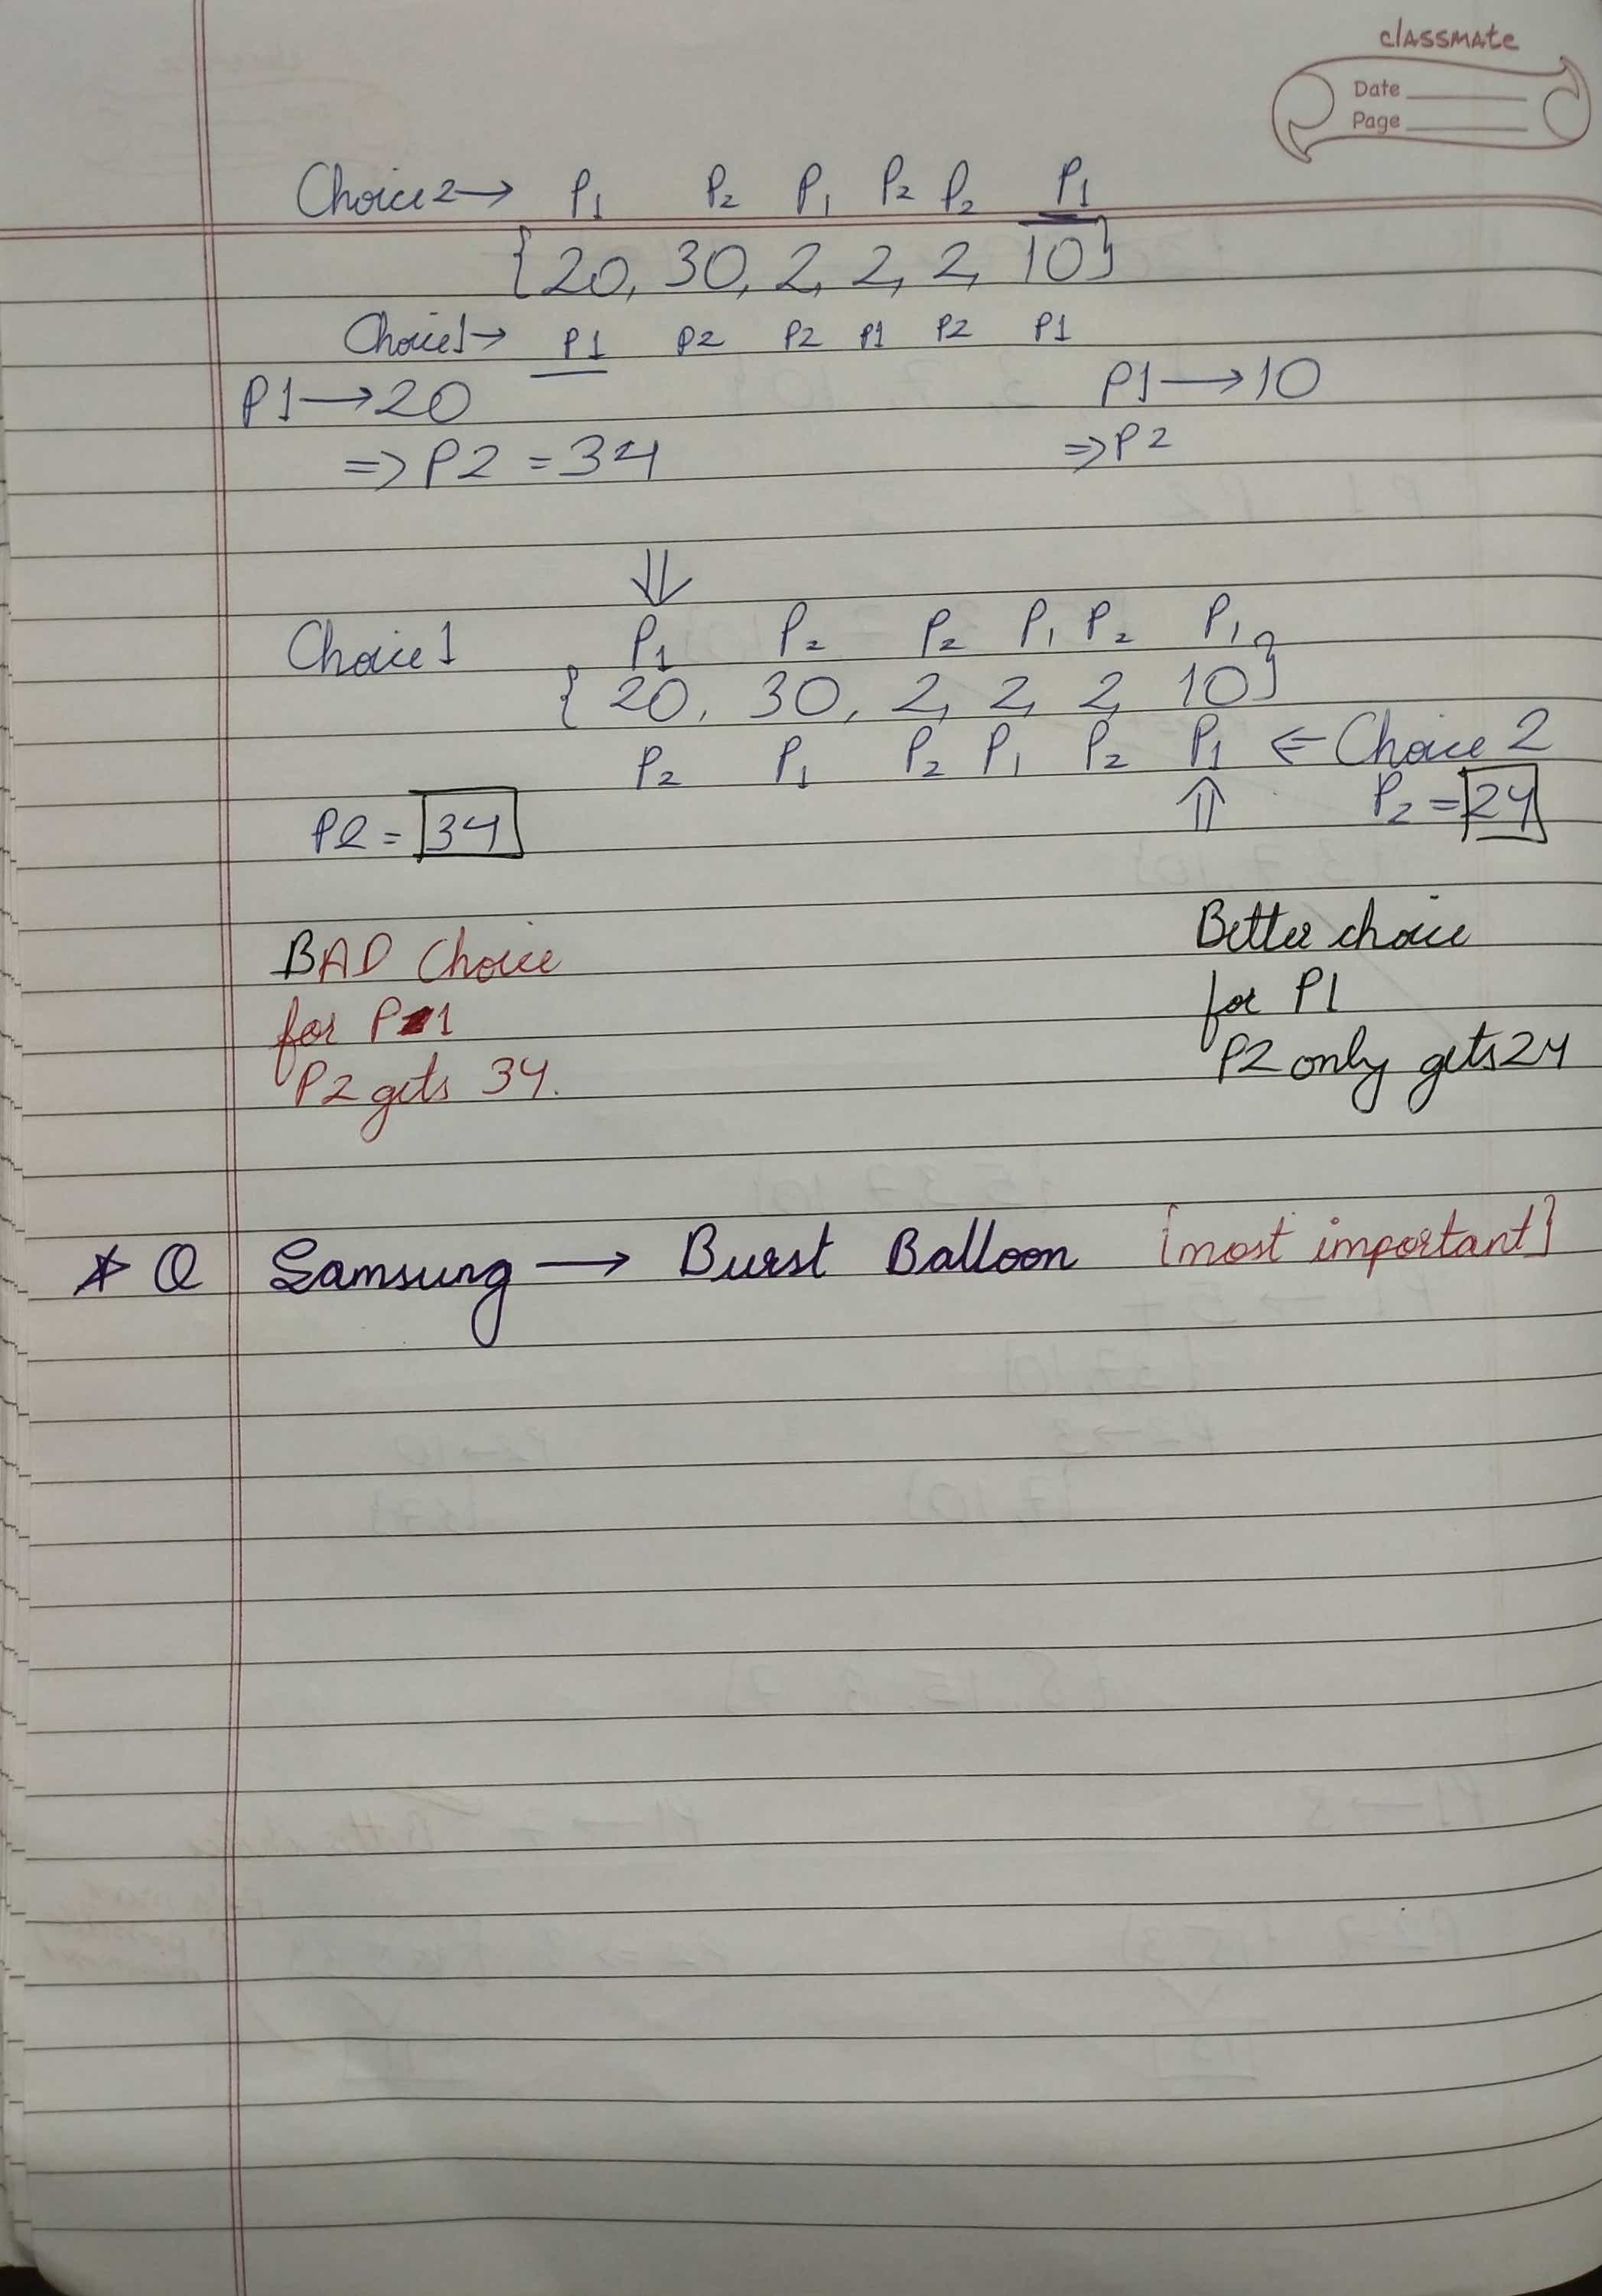 classmate
Date
Page
Choice 2→ P1 P2 P1 P2 P2 P1
{20, 30, 2, 2, 2, 10}
Choice1→ P1 P2 P2 P1 P2 P1
P1→20 P1→10
⇒P2 = 34 ⇒P2
⇓
Choice 1 P1 P2 P2 P1 P2 P1
{20, 30, 2, 2, 2, 10}
P2 P1 P2 P1 P2 P1 ← Choice 2
P2 = 34 ⇑ P2 = 24
BAD Choice Better choice
for P1 for P1
P2 gets 34. P2 only gets 24
* Q Samsung → Burst Balloon [most important]